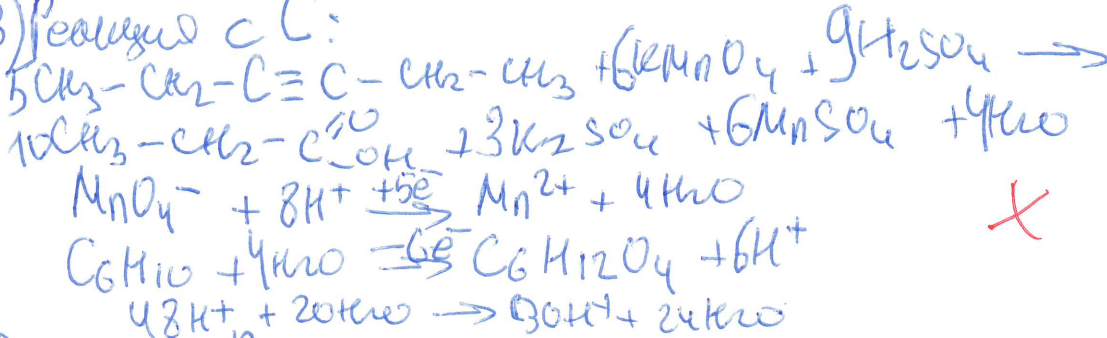 3) Реакция с C:
5CH3-CH2-C≡C-CH2-CH3 +6KMnO4 + 9H2SO4 →
10CH3-CH2-C=O-OH +3K2SO4 +6MnSO4 +4H2O
MnO4⁻ + 8H⁺ +5e⁻→ Mn²⁺ + 4H2O
C6H10 +4H2O -6e⁻→ C6H12O4 +6H⁺
48H⁺ + 20H2O → 30H⁺ + 24H2O